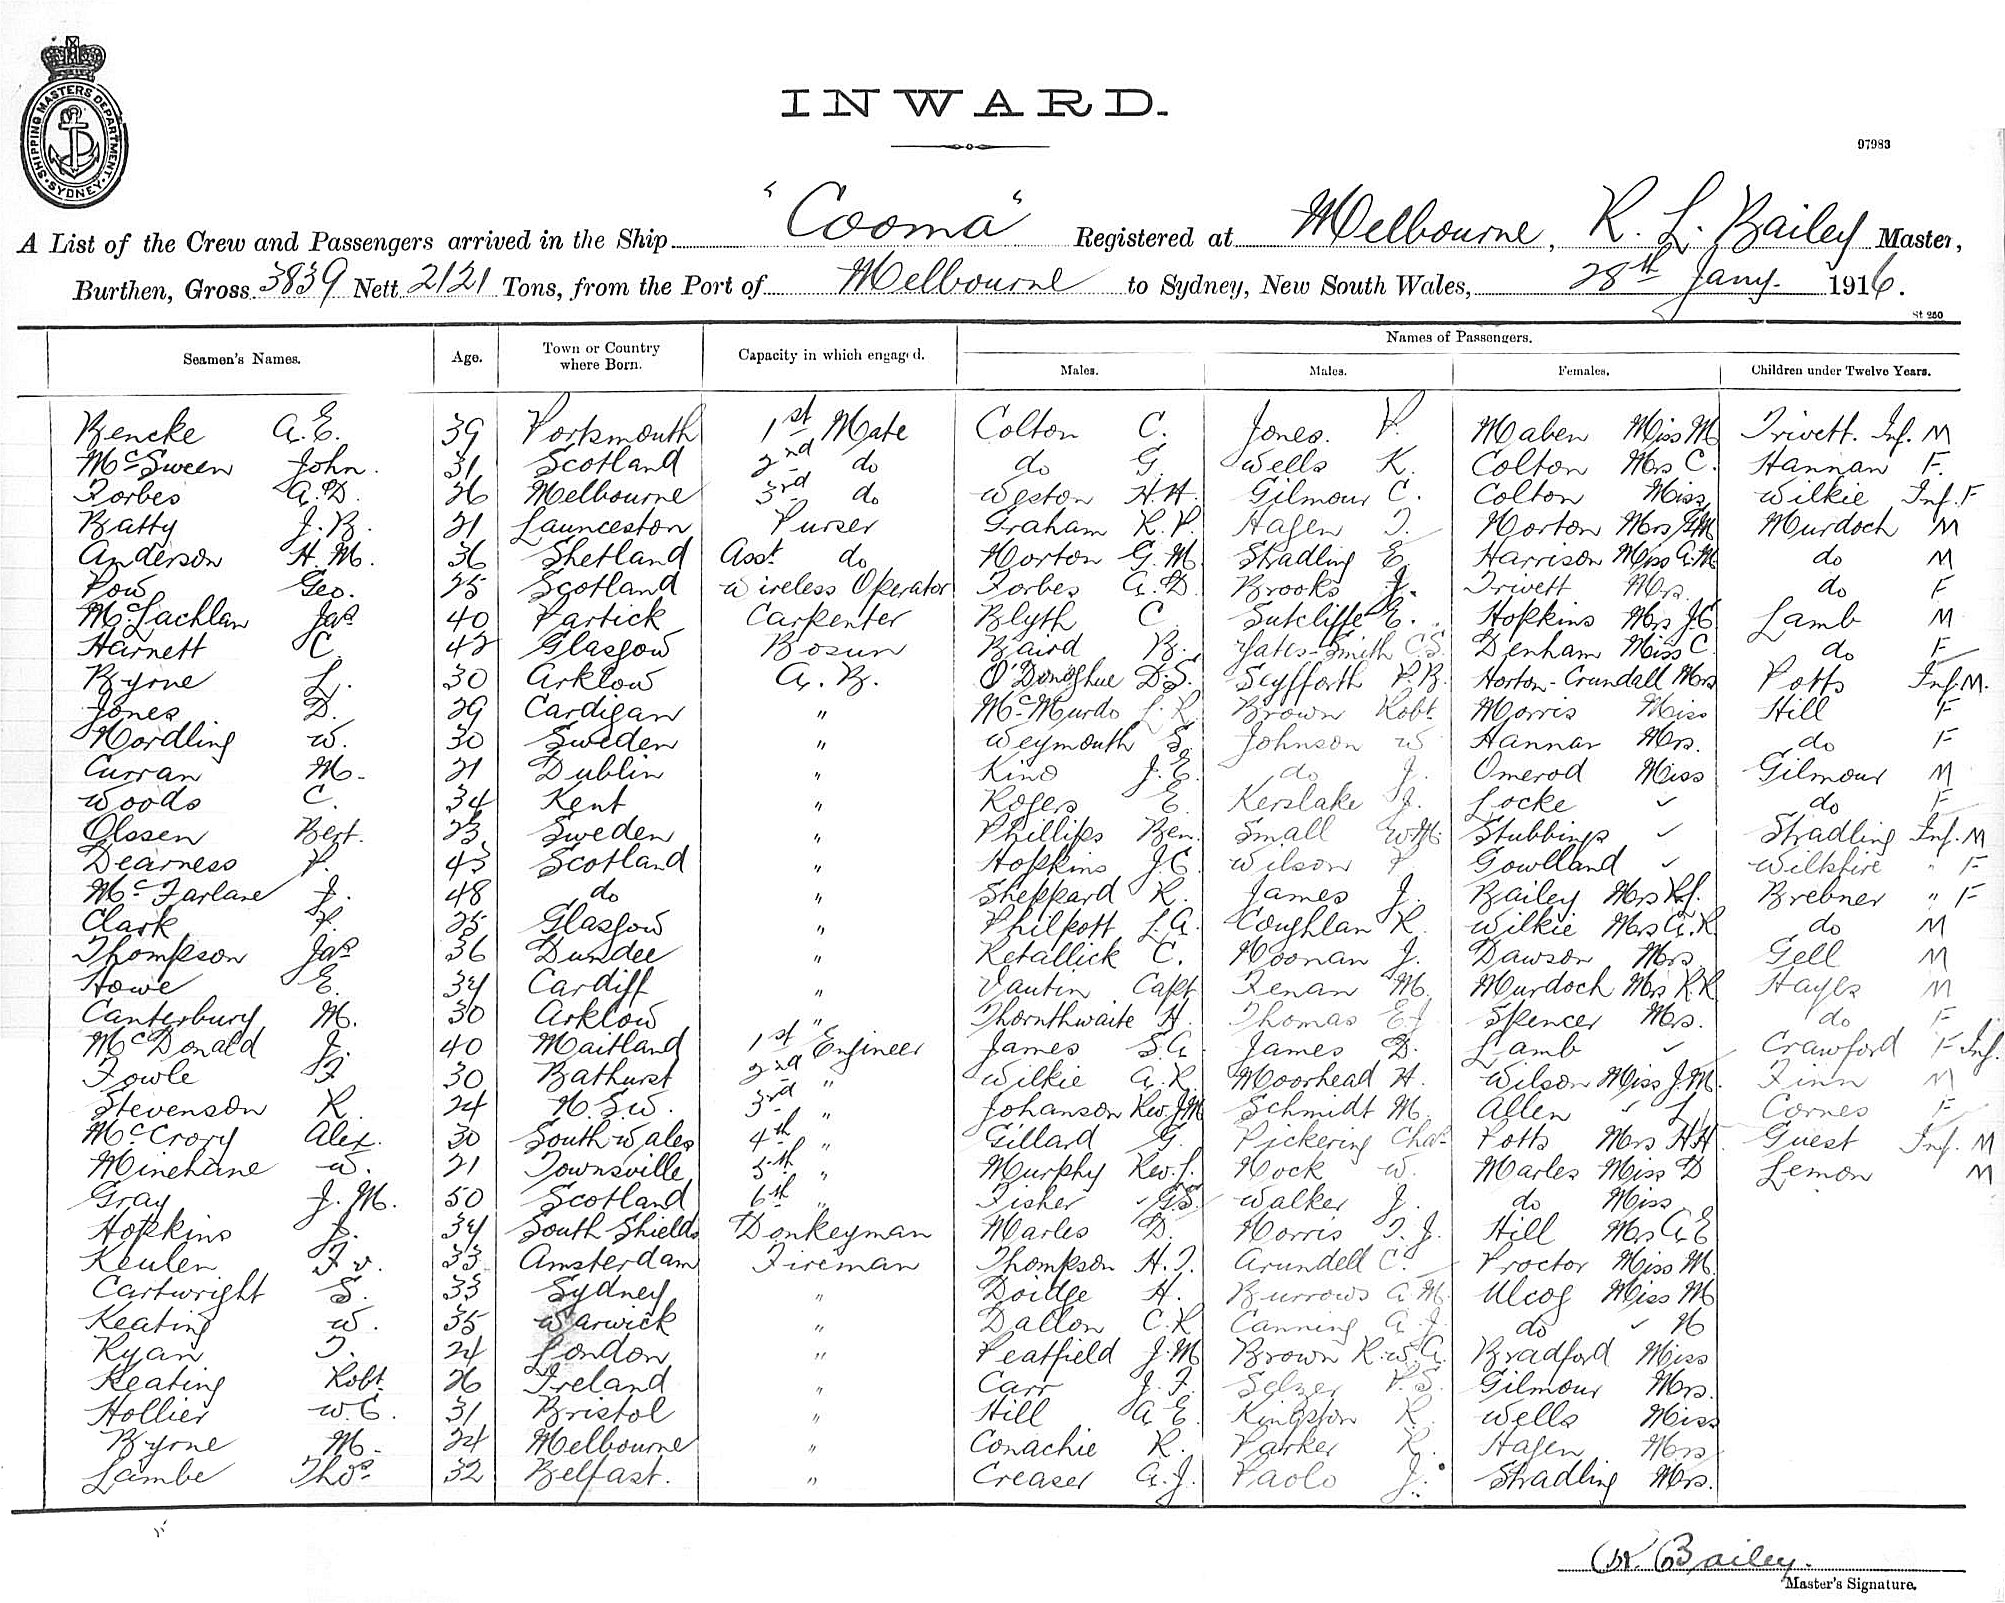 SHIPPING MASTERS DEPARTMENT · SYDNEY ·
INWARD.
97983
A List of the Crew and Passengers arrived in the Ship "Cooma" Registered at Melbourne, R. L. Bailey Master,
Burthen, Gross 3839 Nett 2121 Tons, from the Port of Melbourne to Sydney, New South Wales, 28th Jany. 1916.
St 250
Seamen's Names. Age. Town or Country where Born. Capacity in which engaged. Names of Passengers.
Males. Males. Females. Children under Twelve Years.
Bencke A. E. 39 Portsmouth 1st Mate Colton C. Jones. P. Maben Miss M Trivett. Inf. M
McSween John. 31 Scotland 2nd do do G. Wells K. Colton Mrs C. Hannan F.
Forbes A. D. 26 Melbourne 3rd do Weston H. H. Gilmour C. Colton Miss Wilkie Inf. F
Batty J. B. 21 Launceston Purser Graham R. P. Hagen T. Morton Mrs G M Murdoch M
Anderson H. M. 36 Shetland Asst. do Morton G. M. Stradling E Harrison Miss A. M do M
Pow Geo. 25 Scotland Wireless Operator Forbes A. D. Brooks J. Trivett Mrs. do F
McLachlan Jas 40 Partick Carpenter Blyth C Sutcliffe E. Hopkins Mrs J. C. Lamb M
Harnett C. 42 Glasgow Bosun Baird B. Yates-Smith C. S. Denham Miss C. do F
Byrne L. 30 Arklow A. B. O'Donoghue D. S. Seyfforth P. B. Horton-Crundall Mrs Potts Inf. M.
Jones D. 29 Cardigan " McMurdo L. R. Brown Robt. Morris Miss Hill F
Nordling W. 30 Sweden " Weymouth S. Johnson W Hannan Mrs. do F
Curran M. 21 Dublin " King J. E. do J. Omerod Miss Gilmour M
Woods C. 34 Kent " Rogers E. Kerslake J. Locke " do F
Olssen Bert. 23 Sweden " Phillips Ben. Small W M. Stubbings " Stradling Inf. M
Dearness P. 43 Scotland " Hopkins J. C. Wilson P Gowlland " Wiltshire " F
McFarlane J. 48 do " Sheppard R. James J. Bailey Mrs R. L. Brebner " F
Clark P. 25 Glasgow " Philpott L. A. Coughlan R. Wilkie Mrs A. R do M
Thompson Jas 36 Dundee " Retallick C. Noonan J. Dawson Mrs. Gell M
Howe E. 34 Cardiff " Vautin Capt Fenan M. Murdoch Mrs R. R Hayes M
Canterbury M. 30 Arklow " Thornthwaite H. Thomas E J Spencer Mrs. do F
McDonald J. 40 Maitland 1st Engineer James S. A. James D. Lamb " Crawford F Inf.
Fowle F 30 Bathurst 2nd " Wilkie A. R. Moorhead H. Wilson Miss J. M. Finn M
Stevenson R. 24 N. S. W. 3rd " Johanson Rev. J M Schmidt M. Allen " L. Cornes F
McCrory Alex. 30 South Wales 4th " Gillard G. Pickering Chas Potts Mrs H H. Guest Inf. M
Minehane W. 21 Townsville 5th " Murphy Rev. J. Nock W. Marles Miss D Lemon M
Gray J. M. 50 Scotland 6th " Fisher G S. Walker J. do Miss
Hopkins J. 34 South Shields Donkeyman Marles D. Morris T. J. Hill Mrs A. E
Keulen F. v. 33 Amsterdam Fireman Thompson H. T. Arundell C. Proctor Miss M.
Cartwright S. 33 Sydney " Doidge H. Burrows A. M. Ulcog Miss M
Keating W. 35 Warwick " Dallon C. R Canning A. J. do " N
Ryan T. 24 London " Peatfield J. M Brown R. W. A. Bradford Miss
Keating Robt. 26 Ireland " Carr J. F. Selzer P. S. Gilmour Mrs.
Hollier W. C. 31 Bristol " Hill A E. Kingston R. Wells Miss
Byrne M. 24 Melbourne " Conachie R. Parker R. Hagen Mrs
Lambe Thos. 32 Belfast. " Creaser A. J. Paolo J. Stradling Mrs.
R. Bailey.
Master's Signature.